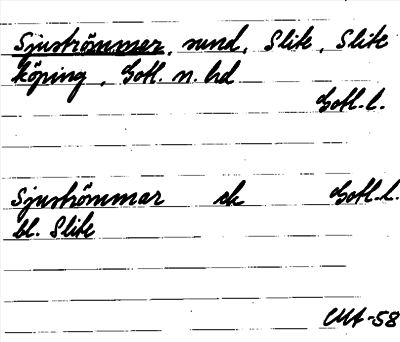 Sjuströmmar, sund, Slite, Slite
köping, Gotl. n. hd
Gotl. l.
Sjuströmmar ek Gotl. l.
bl. Slite
-58